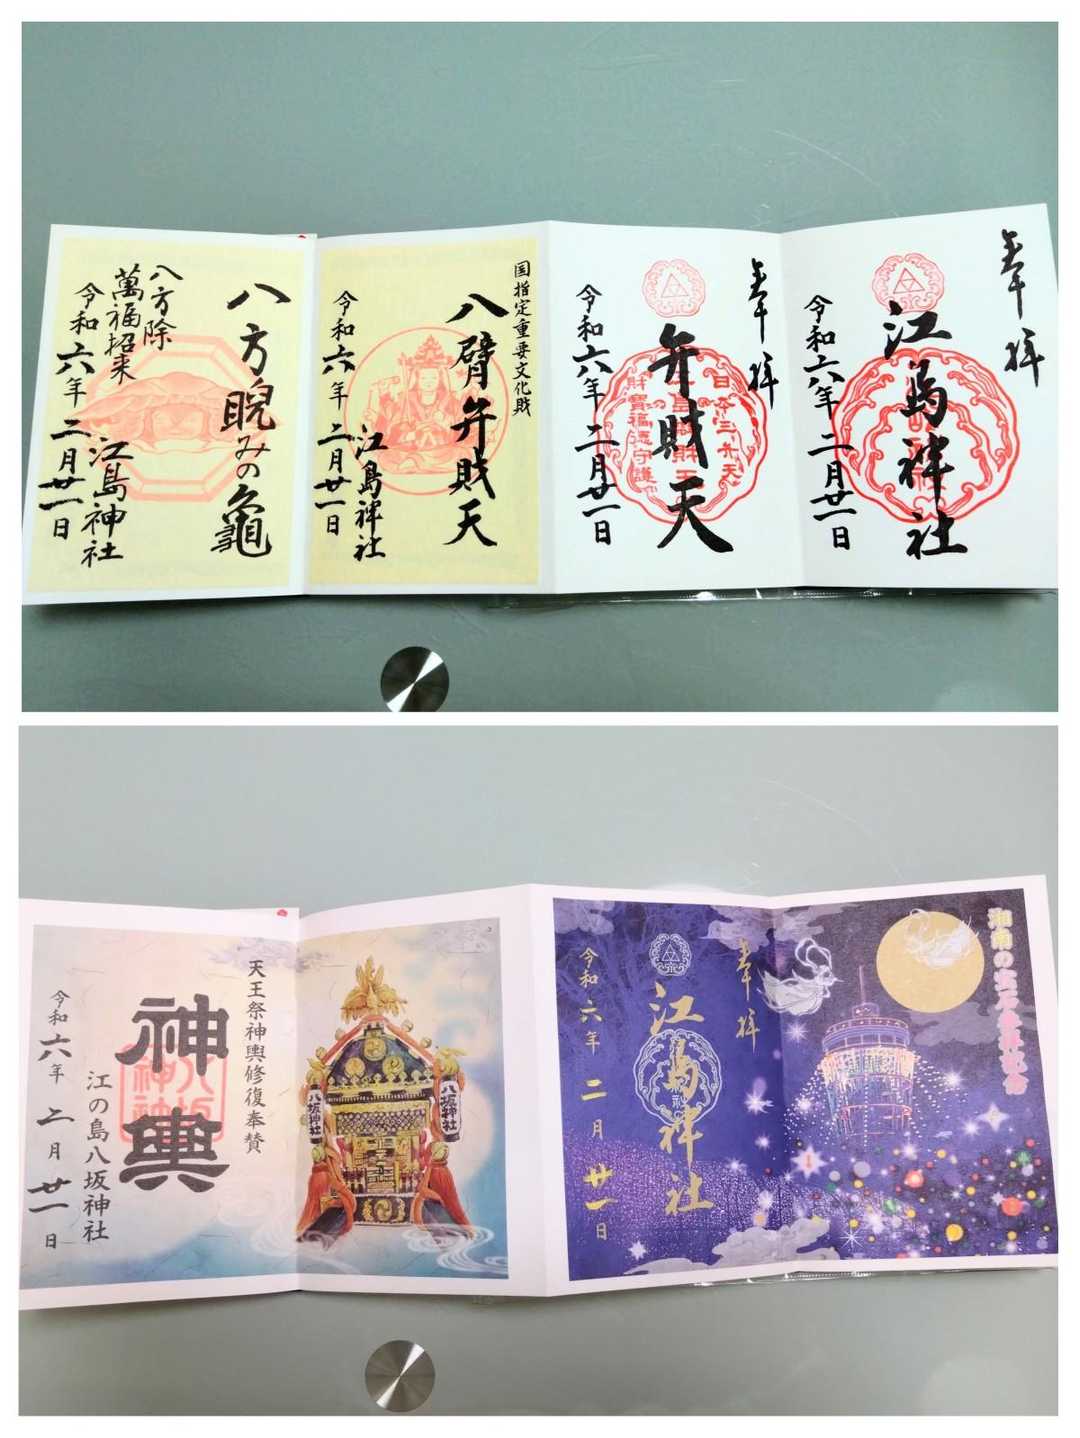 奉拝
江島神社
令和六年二月廿一日
奉拝
弁財天
日本三弁天
財寶福徳守護
令和六年二月廿一日
国指定重要文化財
八臂弁財天
江島神社
令和六年二月廿一日
八方睨みの亀
八方除
萬福招来
江島神社
令和六年二月廿一日
湘南の宝石
奉拝
江島神社
令和六年二月廿一日
八坂神社
八坂神社
天王祭神輿修復奉賛
神輿
江の島八坂神社
令和六年二月廿一日